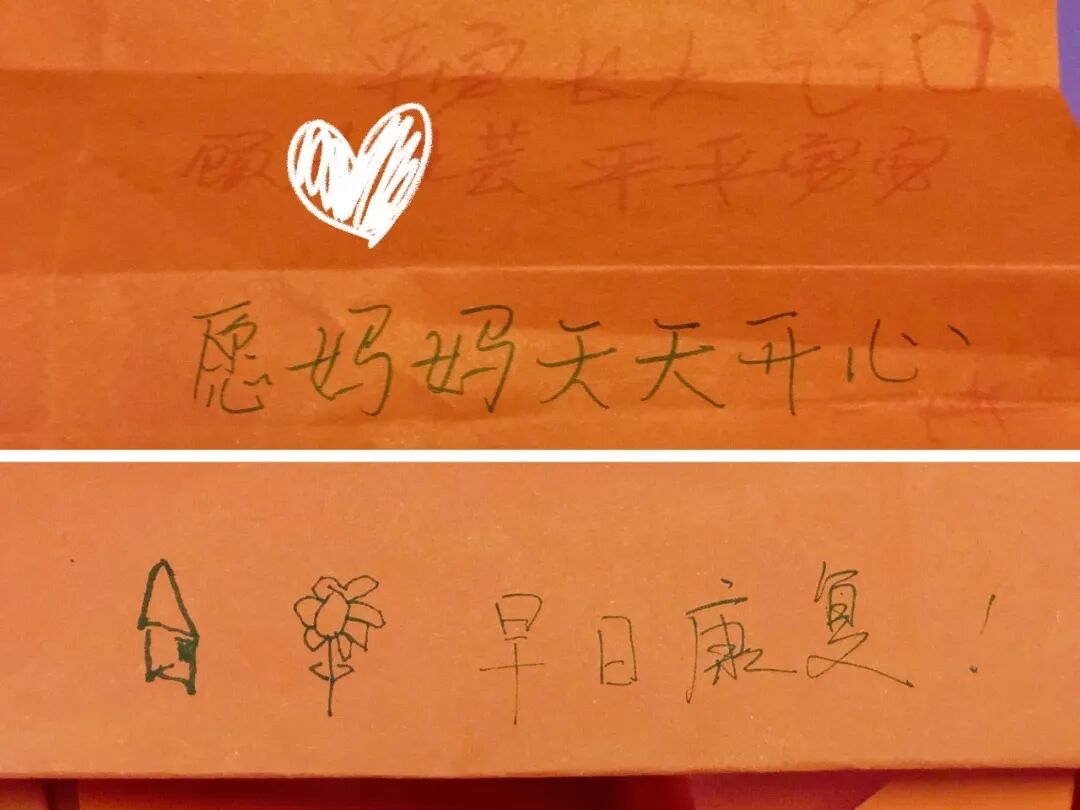 平安长大
芸 平平安安
愿妈妈天天开心
早日康复！